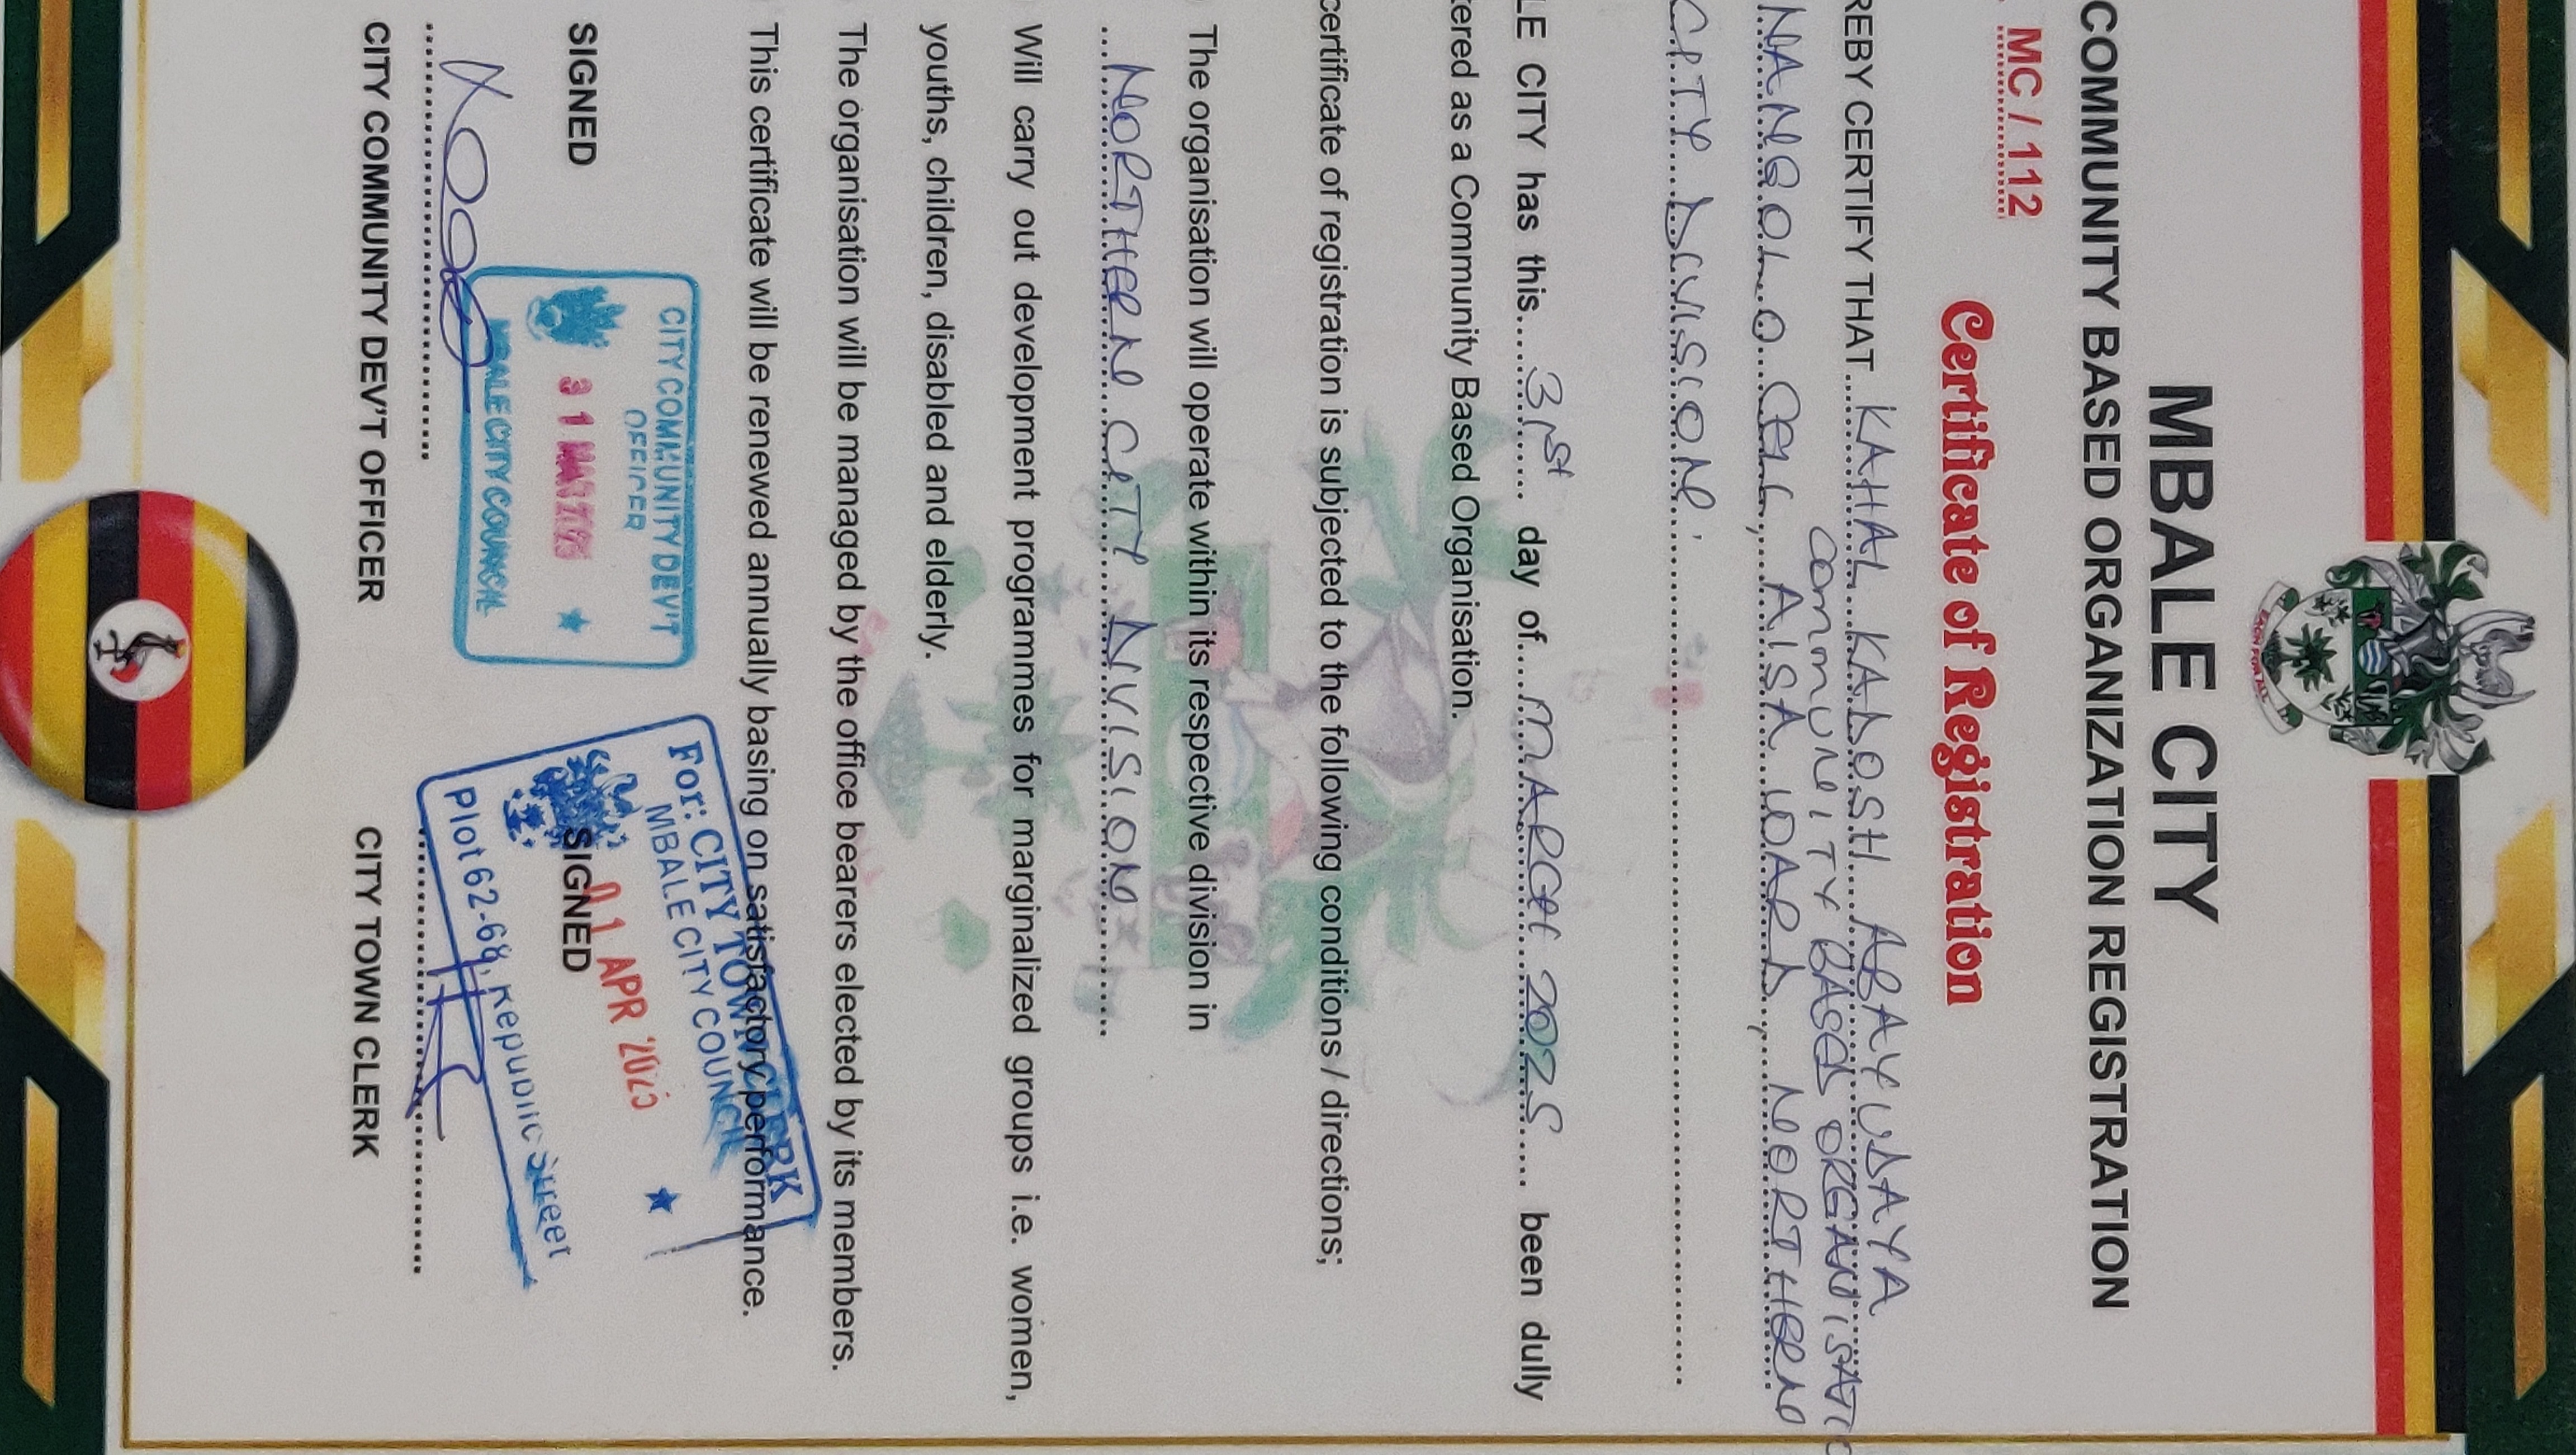 MBALE CITY
COMMUNITY BASED ORGANIZATION REGISTRATION
MC / 112
Certificate of Registration
REBY CERTIFY THAT KAHAL KADOSH ABAYUDAYA
COMMUNITY BASED ORGANISATIO
NANGOLO CELL, AISA WARD, NORTHERN
CITY DIVISION.
LE CITY has this 31st day of MARCH 2025 been dully
ered as a Community Based Organisation.
certificate of registration is subjected to the following conditions / directions;
The organisation will operate within its respective division in
NORTHERN CITY DIVISION
Will carry out development programmes for marginalized groups i.e. women,
youths, children, disabled and elderly.
The organisation will be managed by the office bearers elected by its members.
This certificate will be renewed annually basing on satisfactory performance.
SIGNED
SIGNED
CITY COMMUNITY DEV'T
OFFICER
31 MAR
MBALE CITY COUNCIL
For: CITY TOWN CLERK
MBALE CITY COUNCIL
01 APR
Plot 62-68, Republic Street
CITY COMMUNITY DEV'T OFFICER
CITY TOWN CLERK